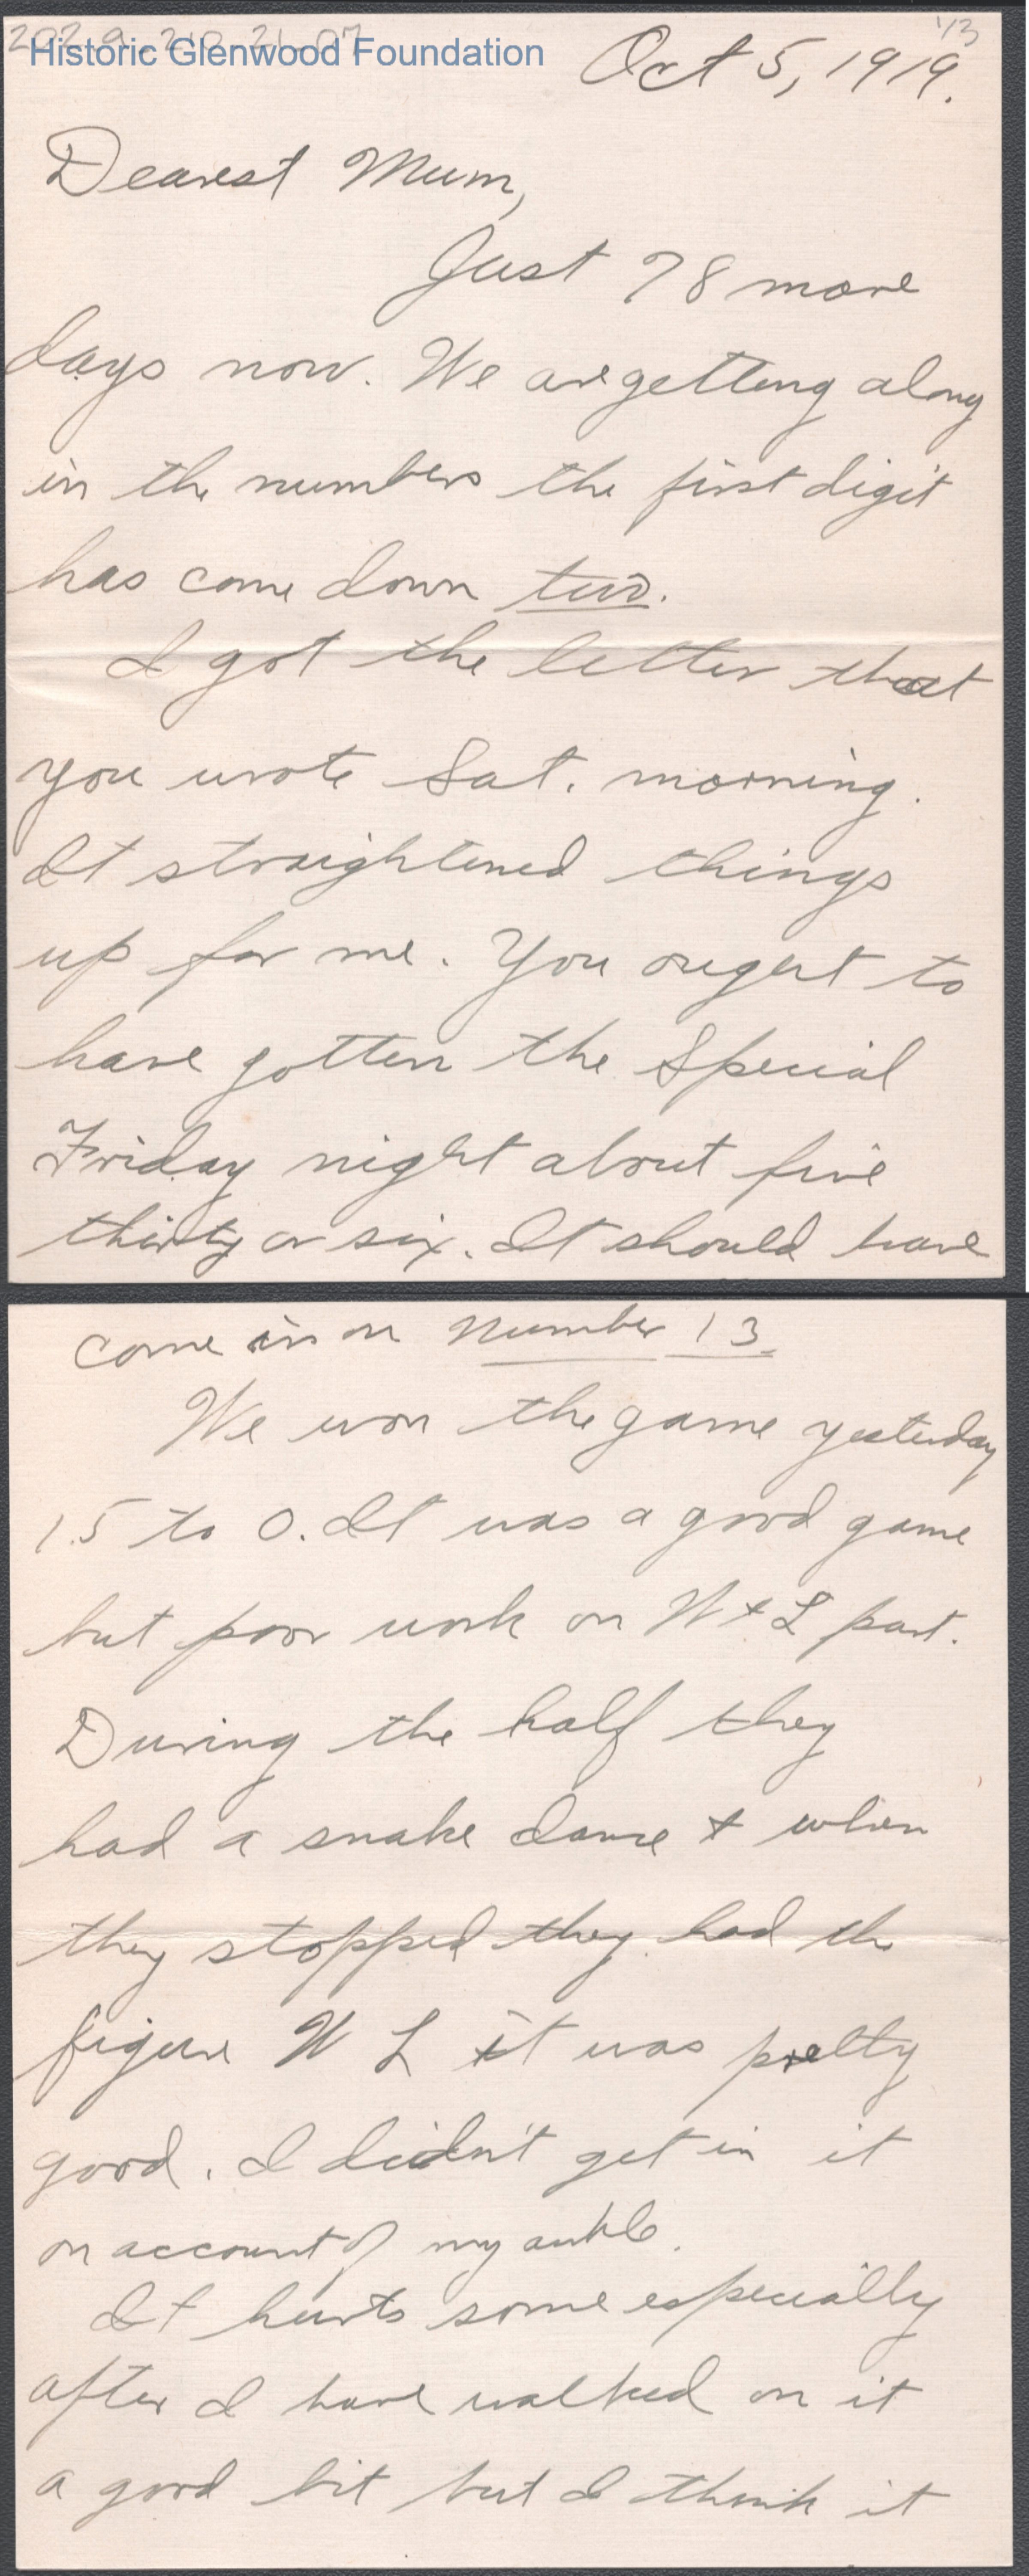 2022.9.210.21.07
1/3
Historic Glenwood Foundation
Oct 5, 1919.
Dearest Mum,
Just 78 more
days now. We are getting along
in the numbers the first digit
has come down two.
I got the letter that
you wrote Sat. morning.
It straightened things
up for me. You ought to
have gotten the Special
Friday night about five
thirty or six. It should have
come in on Number 13.
We won the game yesterday
15 to 0. It was a good game
but poor work on W + L part.
During the half they
had a snake dance + when
they stopped they had the
figure W L it was pretty
good. I didn't get in it
on account of my ankle.
It hurts some especially
after I have walked on it
a good bit but I think it